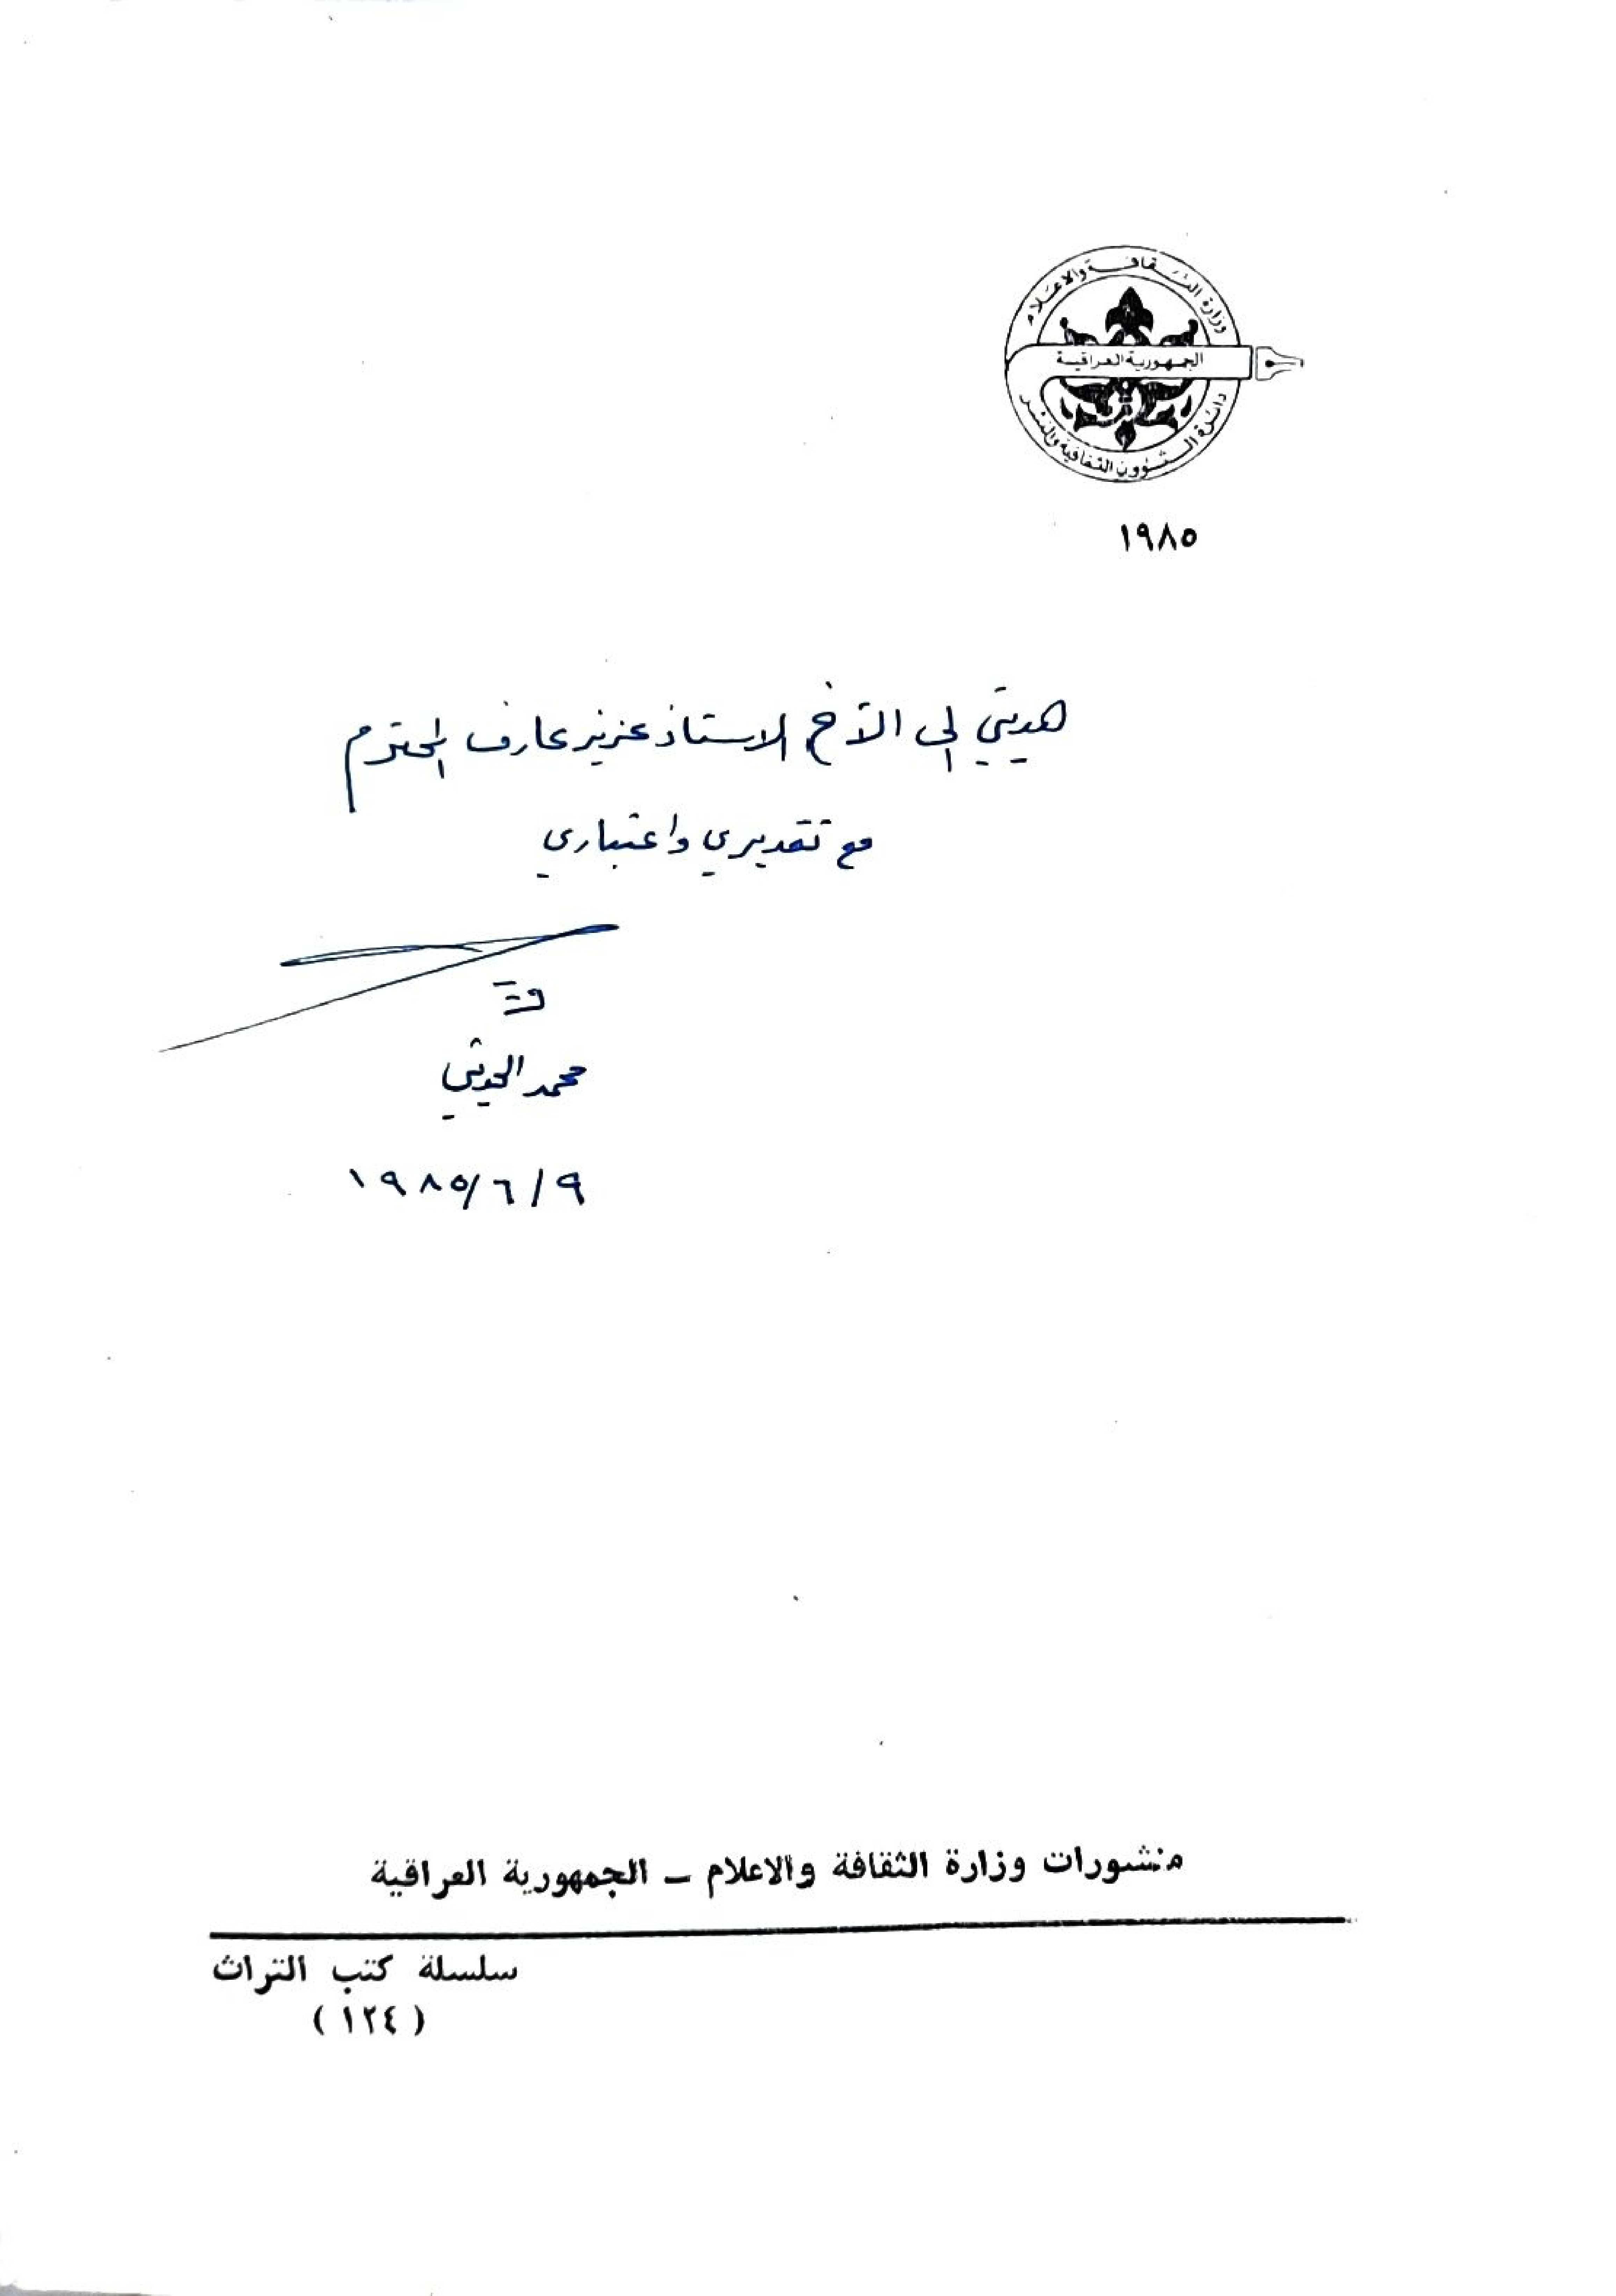 وزارة الثقافة والاعلام
الجمهورية العراقية
دائرة الشؤون الثقافية والنشر
١٩٨٥
هديتي الى الأخ الاستاذ عزيز عارف المحترم
مع تقديري واعتباري
محمد
١٩٨٥/٦/٩
منشورات وزارة الثقافة والاعلام ــ الجمهورية العراقية
سلسلة كتب التراث
( ١٢٤ )